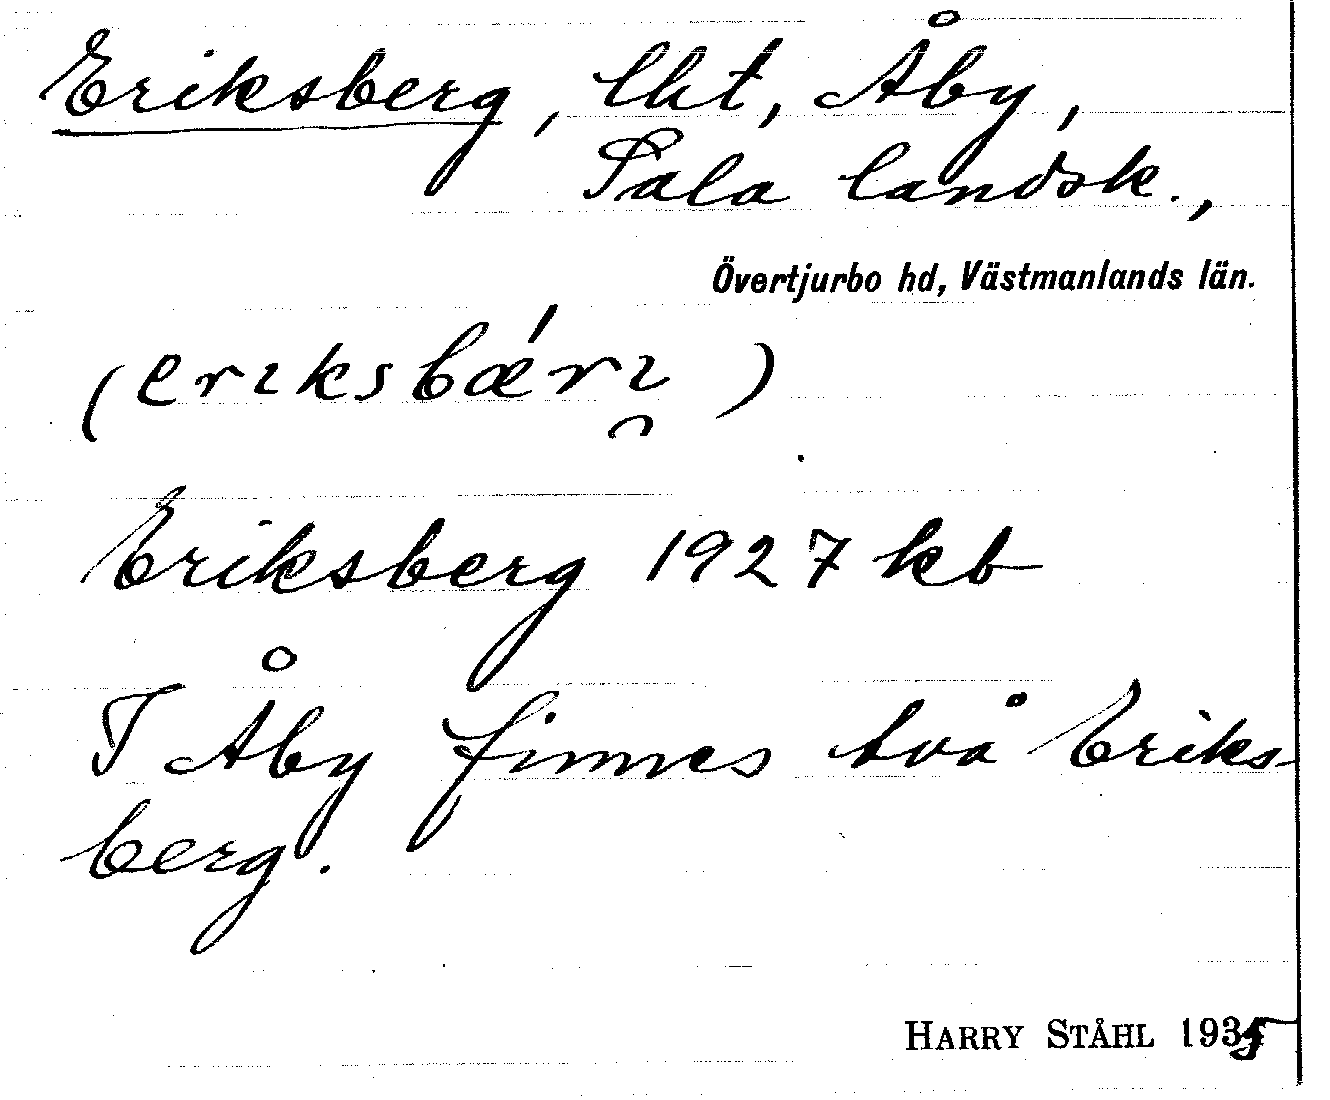 Eriksberg, lht, Åby,
Sala landsk.,
Övertjurbo hd, Västmanlands län.
(erıksbǽrı̯)
Eriksberg 1927 kb
I Åby finnes två Eriks-
berg.
HARRY STÅHL 1935